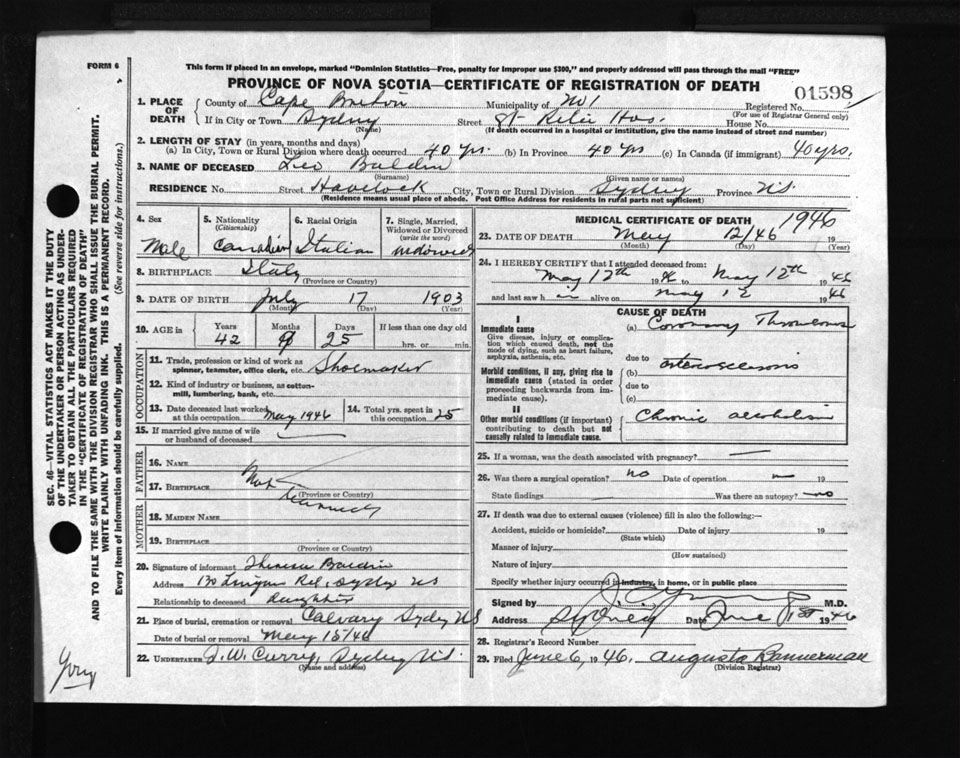 FORM 6
This form if placed in an envelope, marked "Dominion Statistics—Free, penalty for improper use $300," and properly addressed will pass through the mail "FREE"
PROVINCE OF NOVA SCOTIA—CERTIFICATE OF REGISTRATION OF DEATH
01598
1. PLACE OF DEATH
County of Cape Breton Municipality of No 1 Registered No.
(For use of Registrar General only)
If in City or Town Sydney Street St Rita Hos. House No.
(Name) (If death occurred in a hospital or institution, give the name instead of street and number)
2. LENGTH OF STAY (in years, months and days)
(a) In City, Town or Rural Division where death occurred 40 yrs. (b) In Province 40 yrs (c) In Canada (if immigrant) 40 yrs.
3. NAME OF DECEASED Leo Baldin
(Surname) (Given name or names)
RESIDENCE No. Street Havelock City, Town or Rural Division Sydney Province NS.
(Residence means usual place of abode. Post Office Address for residents in rural parts not sufficient)
4. Sex Male
5. Nationality (Citizenship) Canadian
6. Racial Origin Italian
7. Single, Married, Widowed or Divorced (write the word) widowed
8. BIRTHPLACE Italy
(Province or Country)
9. DATE OF BIRTH July 17 1903
(Month) (Day) (Year)
10. AGE in Years Months Days If less than one day old
42 9 25 hrs. or min.
OCCUPATION
11. Trade, profession or kind of work as spinner, teamster, office clerk, etc. Shoemaker
12. Kind of industry or business, as cotton-mill, lumbering, bank, etc.
13. Date deceased last worked at this occupation May 1946
14. Total yrs. spent in this occupation 25
15. If married give name of wife or husband of deceased
FATHER
16. NAME
17. BIRTHPLACE
(Province or Country)
Not
MOTHER
18. MAIDEN NAME
19. BIRTHPLACE
(Province or Country)
20. Signature of informant Theresa Baldin
Address 130 Rd, Sydney NS
Relationship to deceased daughter
21. Place of burial, cremation or removal Calvary Sydney NS
Date of burial or removal May 15/46
22. UNDERTAKER J. W. Curry, Sydney NS.
(Name and address)
MEDICAL CERTIFICATE OF DEATH 1946
23. DATE OF DEATH May 12/46 19
(Month) (Day) (Year)
24. I HEREBY CERTIFY that I attended deceased from:
May 12th 1946 to May 12th 1946
and last saw h im alive on May 12 1946
CAUSE OF DEATH
I
Immediate cause
Give disease, injury, or complication which caused death, not the mode of dying, such as heart failure, asphyxia, asthenia, etc.
(a) Coronary Thrombosis
due to
Morbid conditions, if any, giving rise to immediate cause (stated in order proceeding backwards from immediate cause).
(b) arteriosclerosis
due to
(c)
II
Other morbid conditions (if important) contributing to death but not causally related to immediate cause.
Chronic alcoholism
25. If a woman, was the death associated with pregnancy?
26. Was there a surgical operation? no Date of operation 19
State findings Was there an autopsy? no
27. If death was due to external causes (violence) fill in also the following:—
Accident, suicide or homicide? Date of injury 19
(State which)
Manner of injury
(How sustained)
Nature of injury
Specify whether injury occurred in industry, in home, or in public place
Signed by M.D.
Address Sydney Date June 1st 1946
28. Registrar's Record Number
29. Filed June 6, 1946. Augusta Bannerman
(Division Registrar)
SEC. 46—VITAL STATISTICS ACT MAKES IT THE DUTY
OF THE UNDERTAKER OR PERSON ACTING AS UNDER-
TAKER TO OBTAIN ALL THE PARTICULARS REQUIRED
IN THE "CERTIFICATE OF REGISTRATION OF DEATH"
AND TO FILE THE SAME WITH THE DIVISION REGISTRAR WHO SHALL ISSUE THE BURIAL PERMIT.
WRITE PLAINLY WITH UNFADING INK. THIS IS A PERMANENT RECORD.
Every item of information should be carefully supplied. (See reverse side for instructions.)